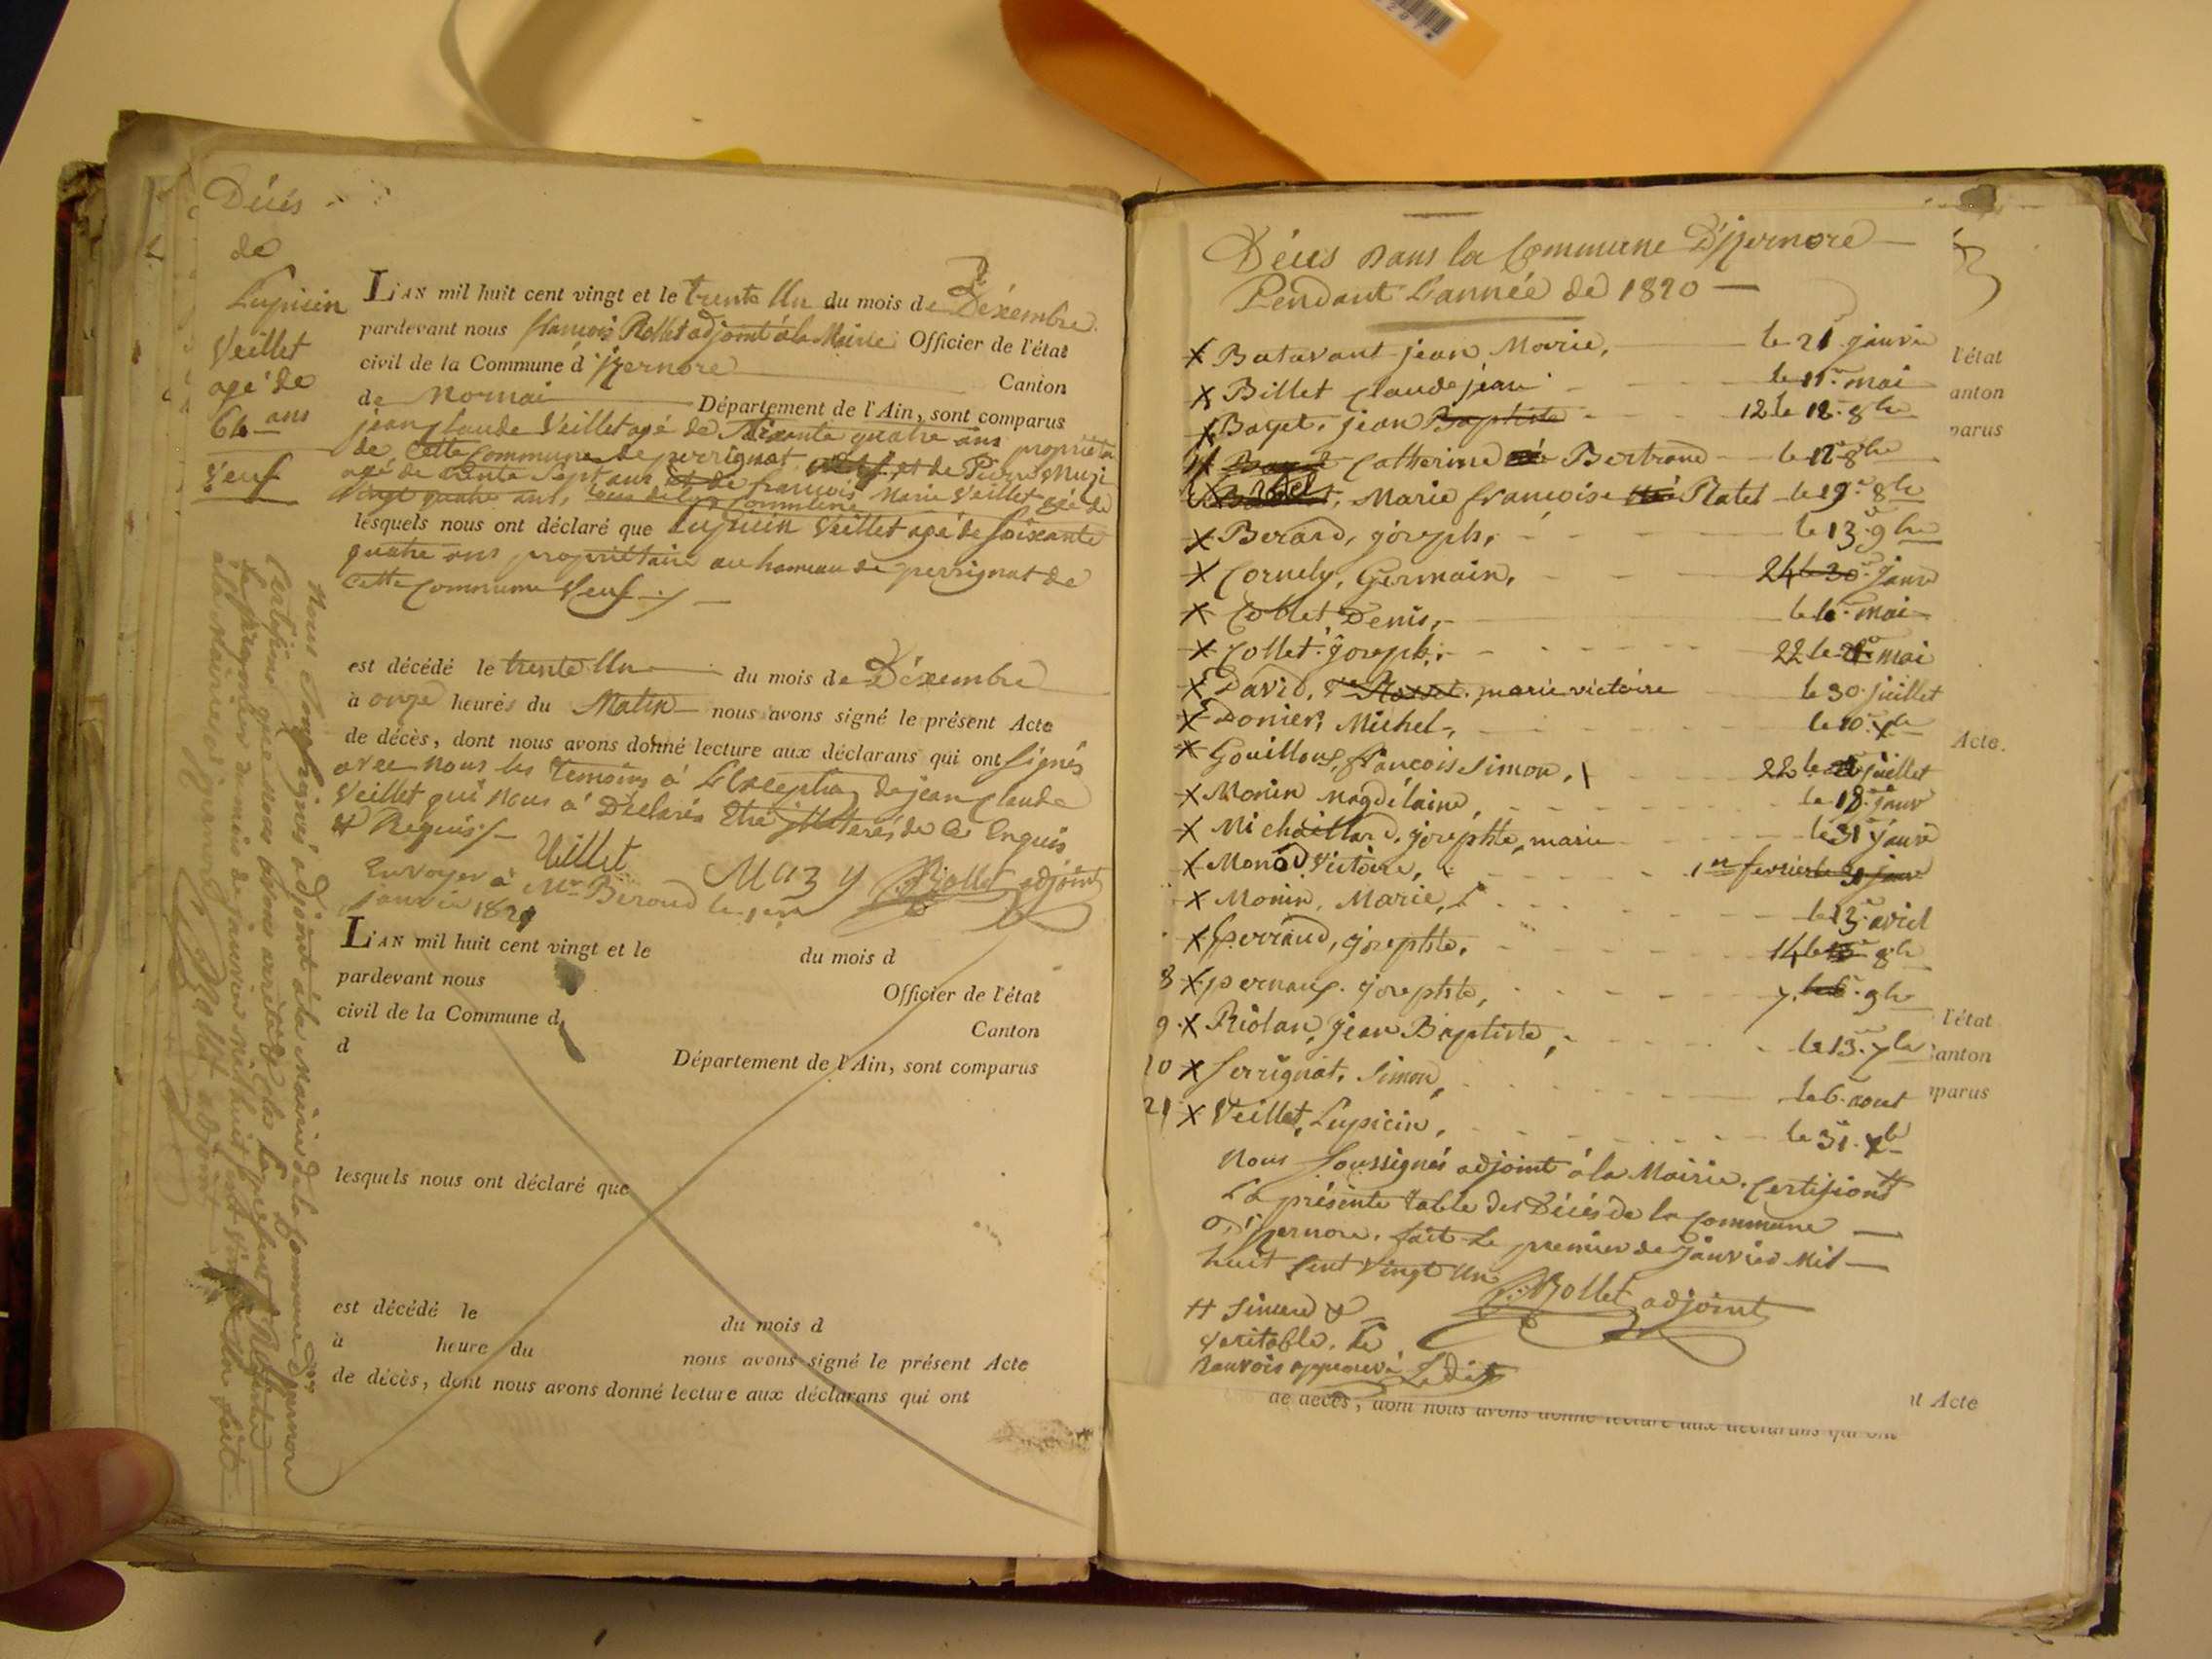 Décès
de
Lupicin
Veillet
agé de
64 ans
veuf
L'AN mil huit cent vingt et le trente Un du mois de Déxembre
pardevant nous françois Rollet adjoint à la Mairie Officier de l'état
civil de la Commune d'jzernore Canton
de Nornai Département de l'Ain, sont comparus
jean Claude Veillet agé de soixante quatre ans propriétaire
de cette Commune de perrignat et de Pierre Muzi
agé de trente Sept ans, et de françois Marie Veillet agé de
vingt quatre ans, tous de la Commune
lesquels nous ont déclaré que Lupicin Veillet agé de soixante
quatre ans propriétaire au hameau de perrignat de
cette Commune Veuf
est décédé le trente Un du mois de Déxembre
à onze heures du Matin nous avons signé le présent Acte
de décès, dont nous avons donné lecture aux déclarans qui ont signés
avec nous les temoins à L'Exception de jean Claude
Veillet qui nous à Déclaré Etre illiteré de ce Enquis
& Requis
Veillet Muzy Rollet adjoint
Envoyer à Mr Beroud le 1er
janvier 1821
L'AN mil huit cent vingt et le du mois d
pardevant nous Officier de l'état
civil de la Commune d Canton
d Département de l'Ain, sont comparus
lesquels nous ont déclaré que
est décédé le du mois d
à heure du nous avons signé le présent Acte
de décès, dont nous avons donné lecture aux déclarans qui ont
Nous soussigné adjoint à la Mairie de la Commune d'jzernore
Certifions que nous avons arrêté & clos le présent Registre
le premier du mois de janvier mil huit cent vingt Un fait
à la Mairie d'jzernore Rollet adjoint
Décès dans la Commune D'jzernore
Pendant L'année de 1820
Batavant jean Marie, le 21 janvier
Billet Claude jean le 11 mai
Bayet, jean Baptiste 12 le 18 8bre
Catherine Bertrand le 12 8bre
Marie françoise Ratel le 19 8bre
Berard, joseph, le 13 9bre
Cornely, Germain, 24 le 30 janvr
Collet, Denis, le 6 mai
Collet joseph, 22 le 21 mai
David, marie victoire le 30 juillet
Donier, Michel, le 10 Xbre
Gouilloux, françois Simon, 22 le juillet
Monin Magdélaine, le 18 janvr
Michaillard, josephte, marie le 31 janvr
Monod Victoire, 1er fevrier le 30 janvr
Monin, Marie, le 13 avril
Perraud, josephte, 14 le 8bre
8 pernaux josephte, 7 le 6 9bre
9 Riolan, jean Baptiste, le 13 7bre
10 Serrignat, Simon, le 6 aout
21 Veillet, Lupicin, le 31 Xbre
Nous soussignés adjoint à la Mairie, Certifions #
La présente table des Décès de la Commune
d'jzernore, fait le premier de janvier Mil
huit Cent Vingt Un
Rollet adjoint
# sincere &
veritable, le
Renvois approuvé Ledit
l'état
anton
parus
Acte.
l'état
Canton
mparus
t Acte
de décès, dont nous avons donné lecture aux déclarans qui ont